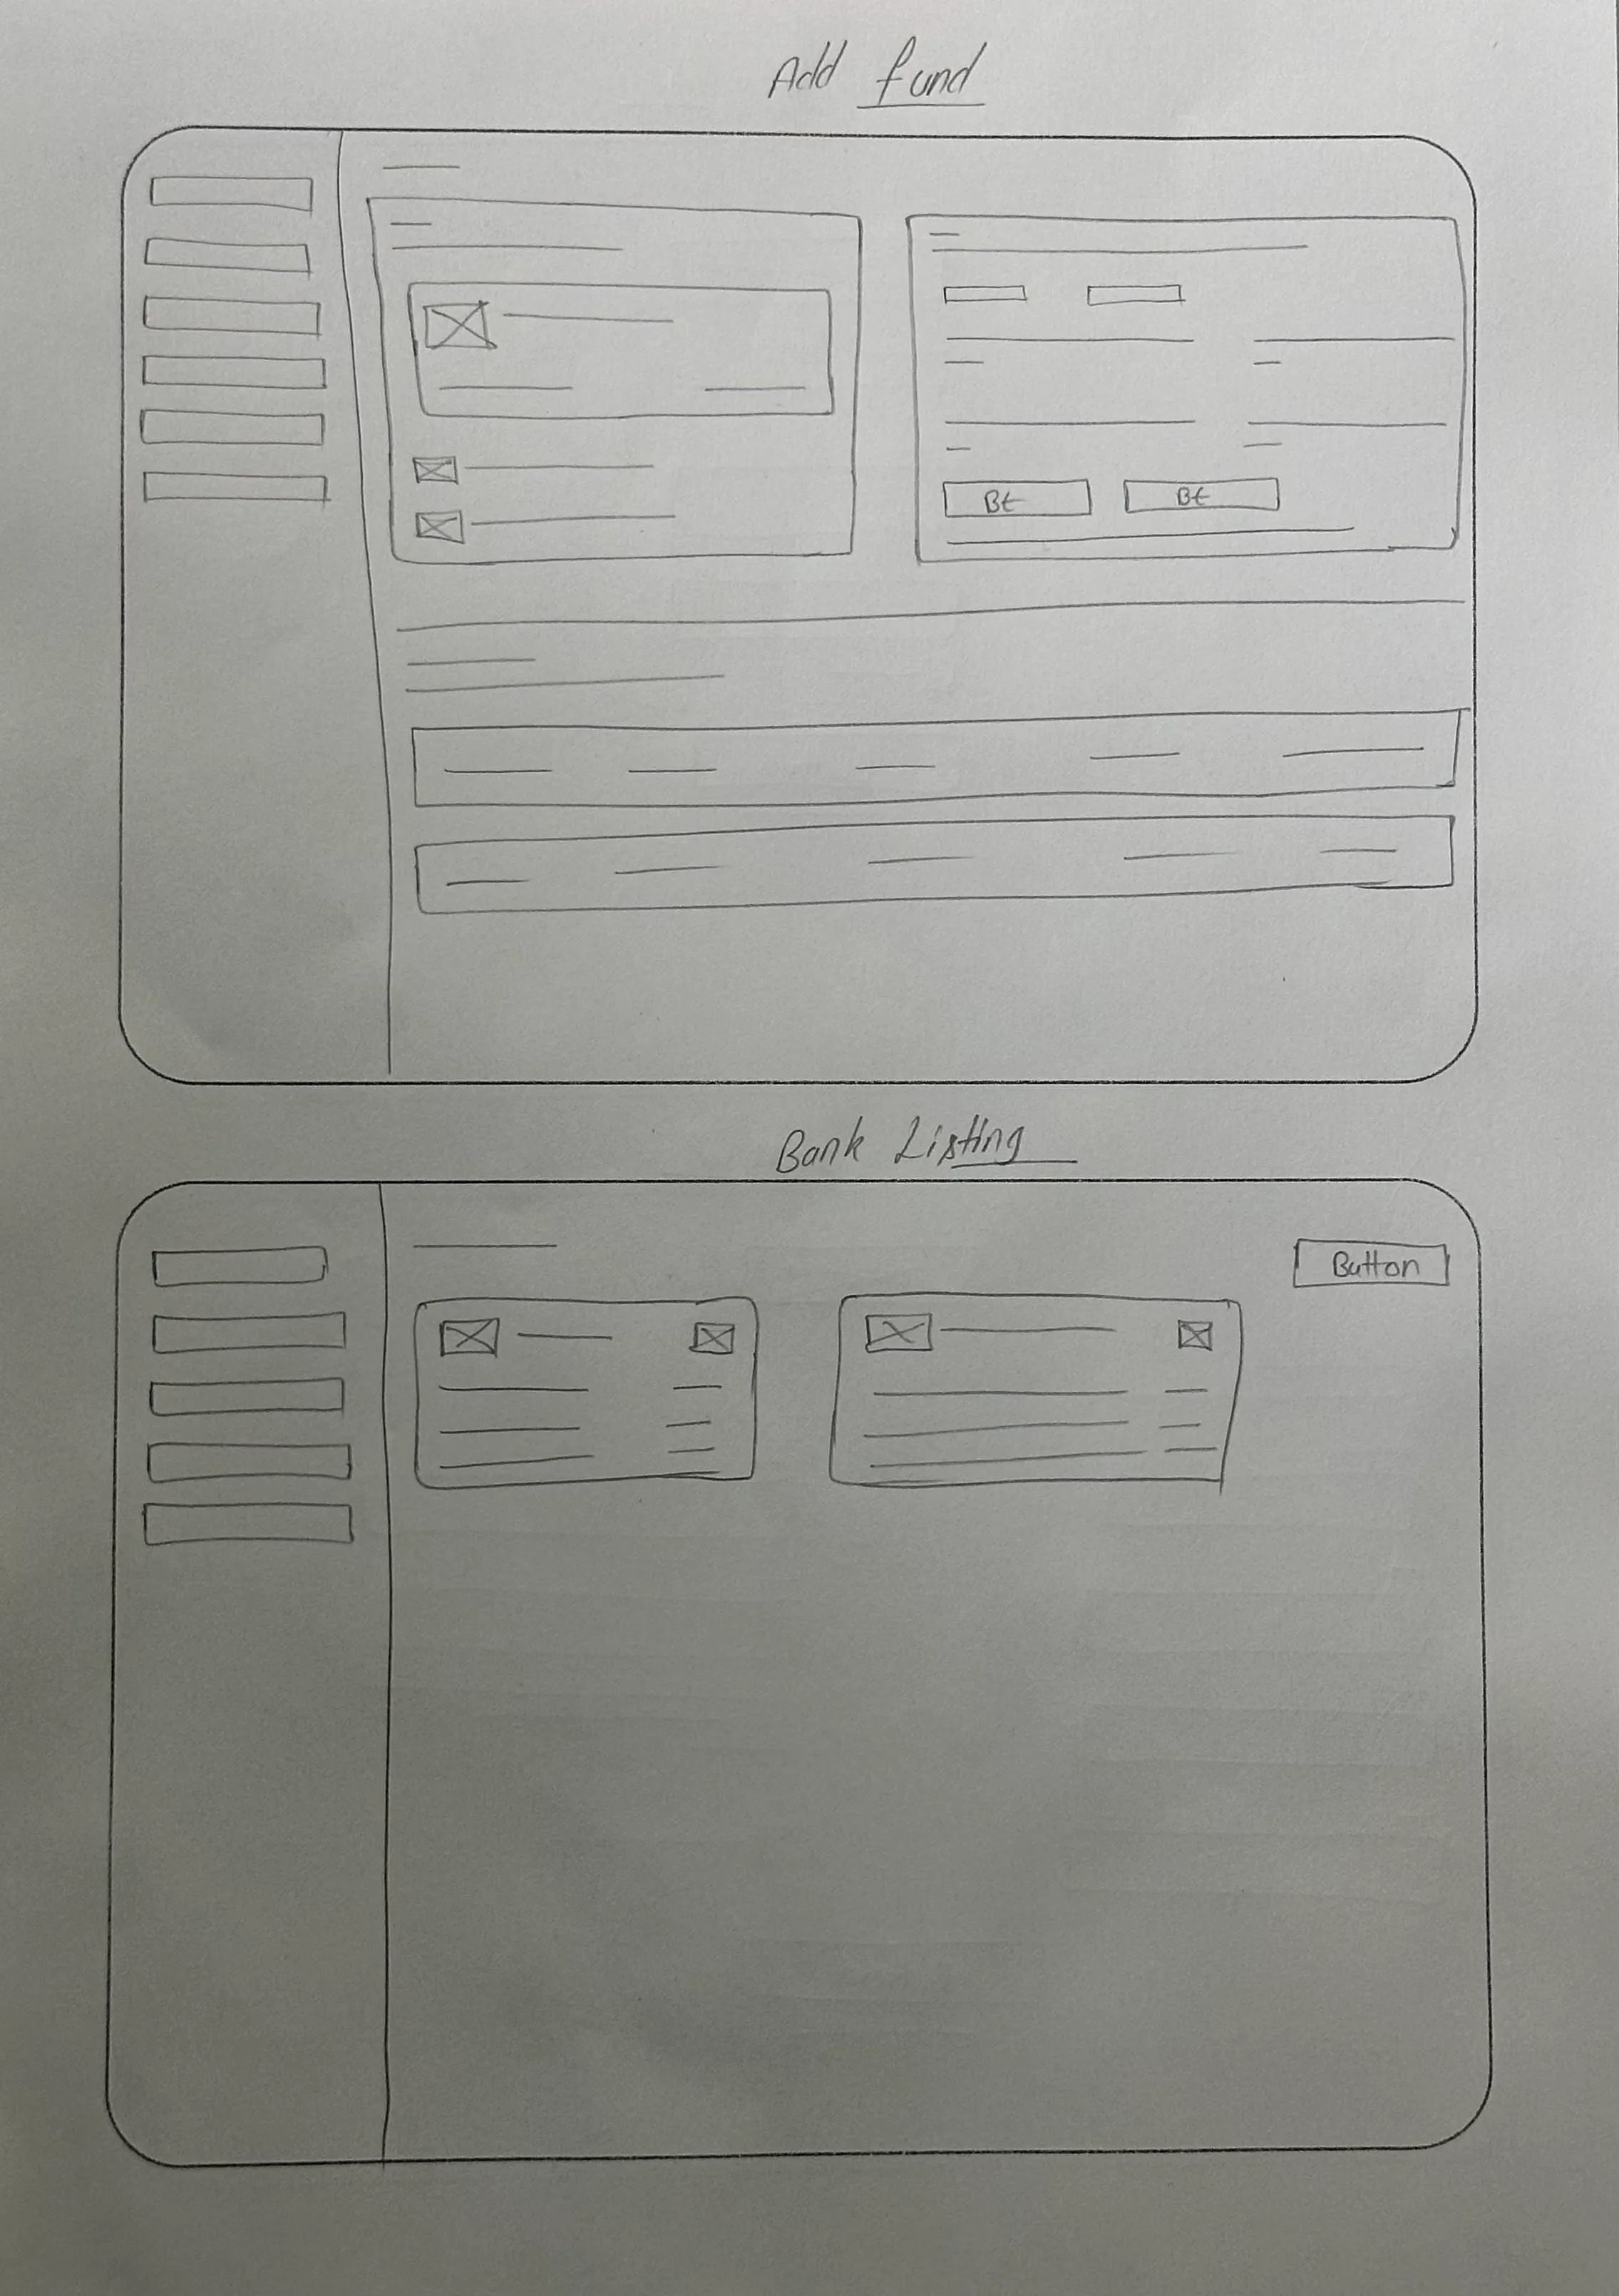 Add fund
Bt Bt
Bank Listing
Button